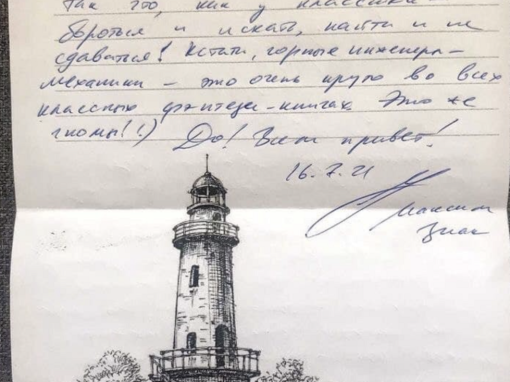 Так что, как у классика –
бороться и искать, найти и не
сдаваться! Кстати, горные инженера-
механики – это очень круто во всех
классных фэнтези-книгах. Это же
гномы! :) До! Всем привет!
16.7.21
Максим